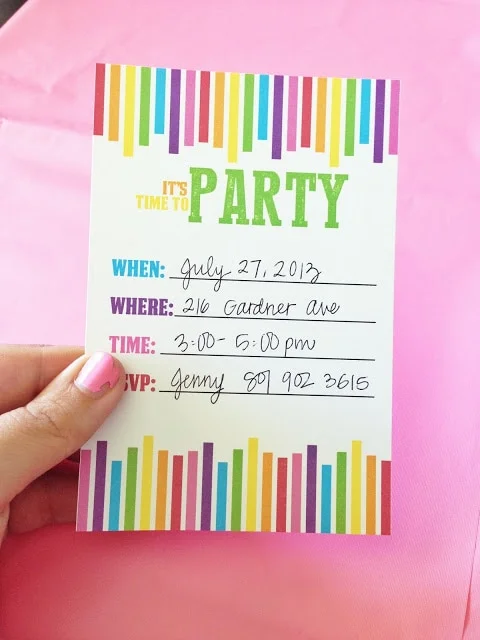 IT'S
TIME TO PARTY
WHEN: July 27, 2013
WHERE: 216 Gardner Ave
TIME: 3:00 - 5:00 pm
SVP: Jenny 801 902 3615